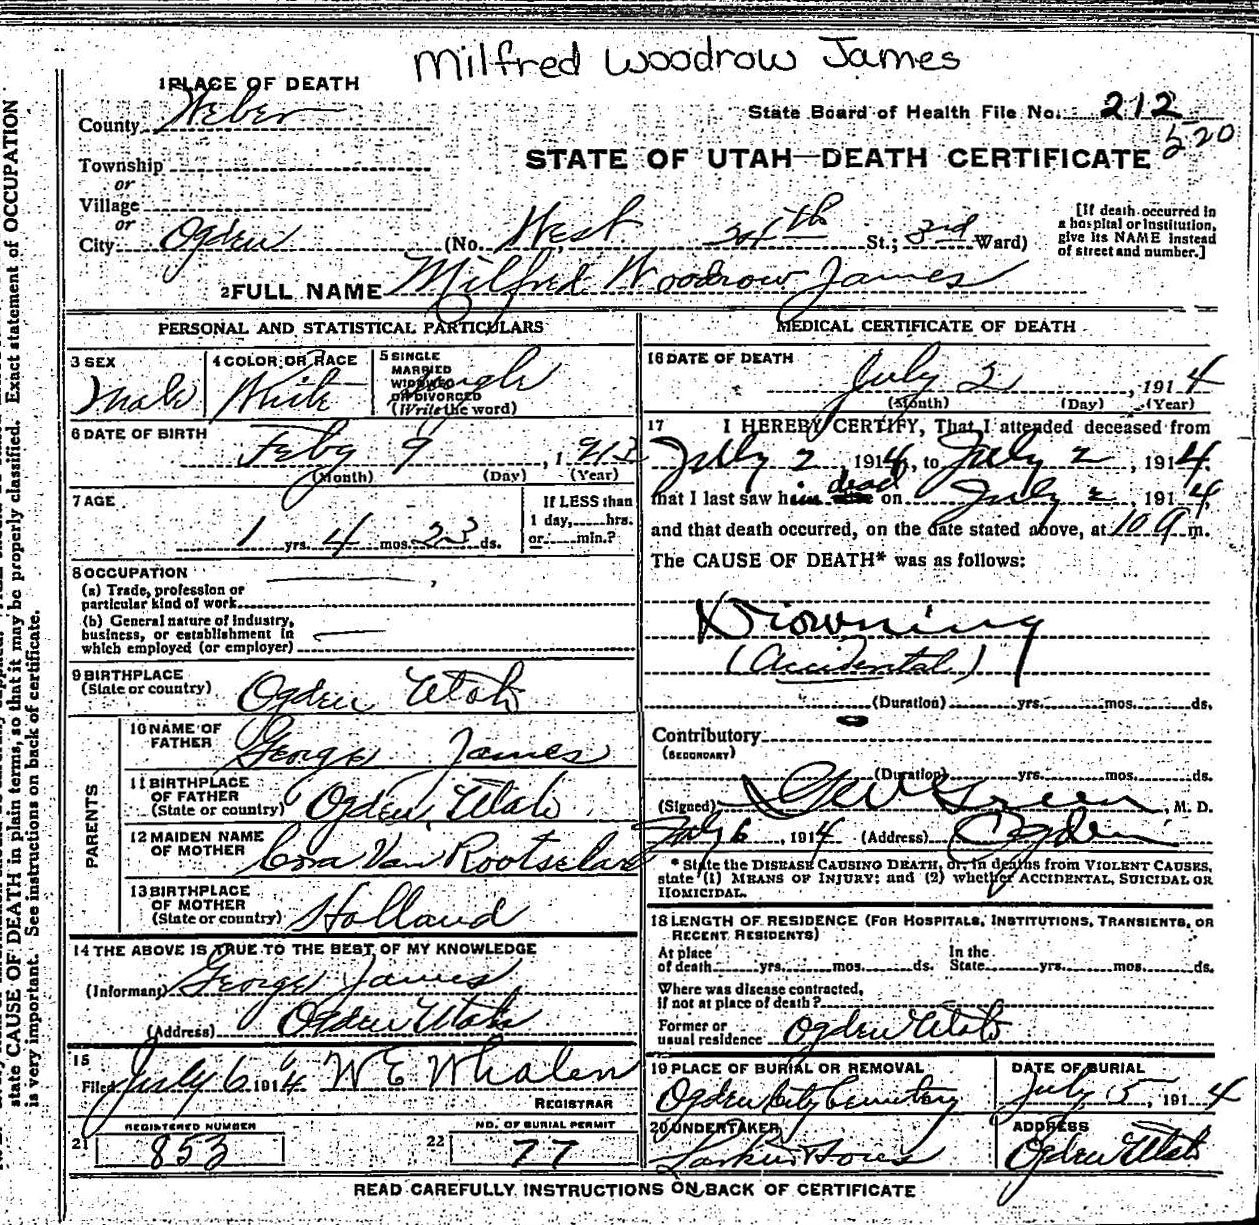 Milfred Woodrow James
1 PLACE OF DEATH
County Weber
State Board of Health File No. 212
520
STATE OF UTAH—DEATH CERTIFICATE
Township
or
Village
or
City Ogden (No. West 24th St.; 3rd Ward)
[If death occurred in a hospital or institution, give its NAME instead of street and number.]
2 FULL NAME Milfred Woodrow James
PERSONAL AND STATISTICAL PARTICULARS
3 SEX
Male
4 COLOR OR RACE
White
5 SINGLE
MARRIED
WIDOWED
OR DIVORCED
(Write the word)
Single
6 DATE OF BIRTH
Feby 9, 1913
(Month) (Day) (Year)
7 AGE
1 yrs. 4 mos. 23 ds.
If LESS than
1 day, hrs.
or min.?
8 OCCUPATION
(a) Trade, profession or
particular kind of work
(b) General nature of industry,
business, or establishment in
which employed (or employer)
9 BIRTHPLACE
(State or country) Ogden Utah
PARENTS
10 NAME OF
FATHER George James
11 BIRTHPLACE
OF FATHER
(State or country) Ogden, Utah
12 MAIDEN NAME
OF MOTHER Van
13 BIRTHPLACE
OF MOTHER
(State or country) Holland
14 THE ABOVE IS TRUE TO THE BEST OF MY KNOWLEDGE
(Informant) George James
(Address) Ogden Utah
15
Filed July 6 1914 W E Whalen
REGISTRAR
21 REGISTERED NUMBER
853
22 NO. OF BURIAL PERMIT
77
MEDICAL CERTIFICATE OF DEATH
16 DATE OF DEATH
July 2, 1914
(Month) (Day) (Year)
17 I HEREBY CERTIFY, That I attended deceased from
July 2 1914, to July 2, 1914.
that I last saw him dead on July 2, 1914
and that death occurred, on the date stated above, at 10 m.
The CAUSE OF DEATH* was as follows:
Drowning
(Accidental)
(Duration) yrs. mos. ds.
Contributory
(SECONDARY)
(Duration) yrs. mos. ds.
(Signed) Green, M. D.
July 6, 1914 (Address) Ogden
* State the DISEASE CAUSING DEATH, or, in deaths from VIOLENT CAUSES,
state (1) MEANS OF INJURY; and (2) whether ACCIDENTAL, SUICIDAL OR
HOMICIDAL.
18 LENGTH OF RESIDENCE (FOR HOSPITALS, INSTITUTIONS, TRANSIENTS, OR
RECENT RESIDENTS)
At place
of death yrs. mos. ds.
In the
State yrs. mos. ds.
Where was disease contracted,
if not at place of death?
Former or
usual residence Ogden Utah
19 PLACE OF BURIAL OR REMOVAL
Ogden City Cemetery
DATE OF BURIAL
July 5, 1914
20 UNDERTAKER
Larkin
ADDRESS
Ogden Utah
READ CAREFULLY INSTRUCTIONS ON BACK OF CERTIFICATE
state CAUSE OF DEATH in plain terms, so that it may be properly classified. Exact statement of OCCUPATION
is very important. See instructions on back of certificate.